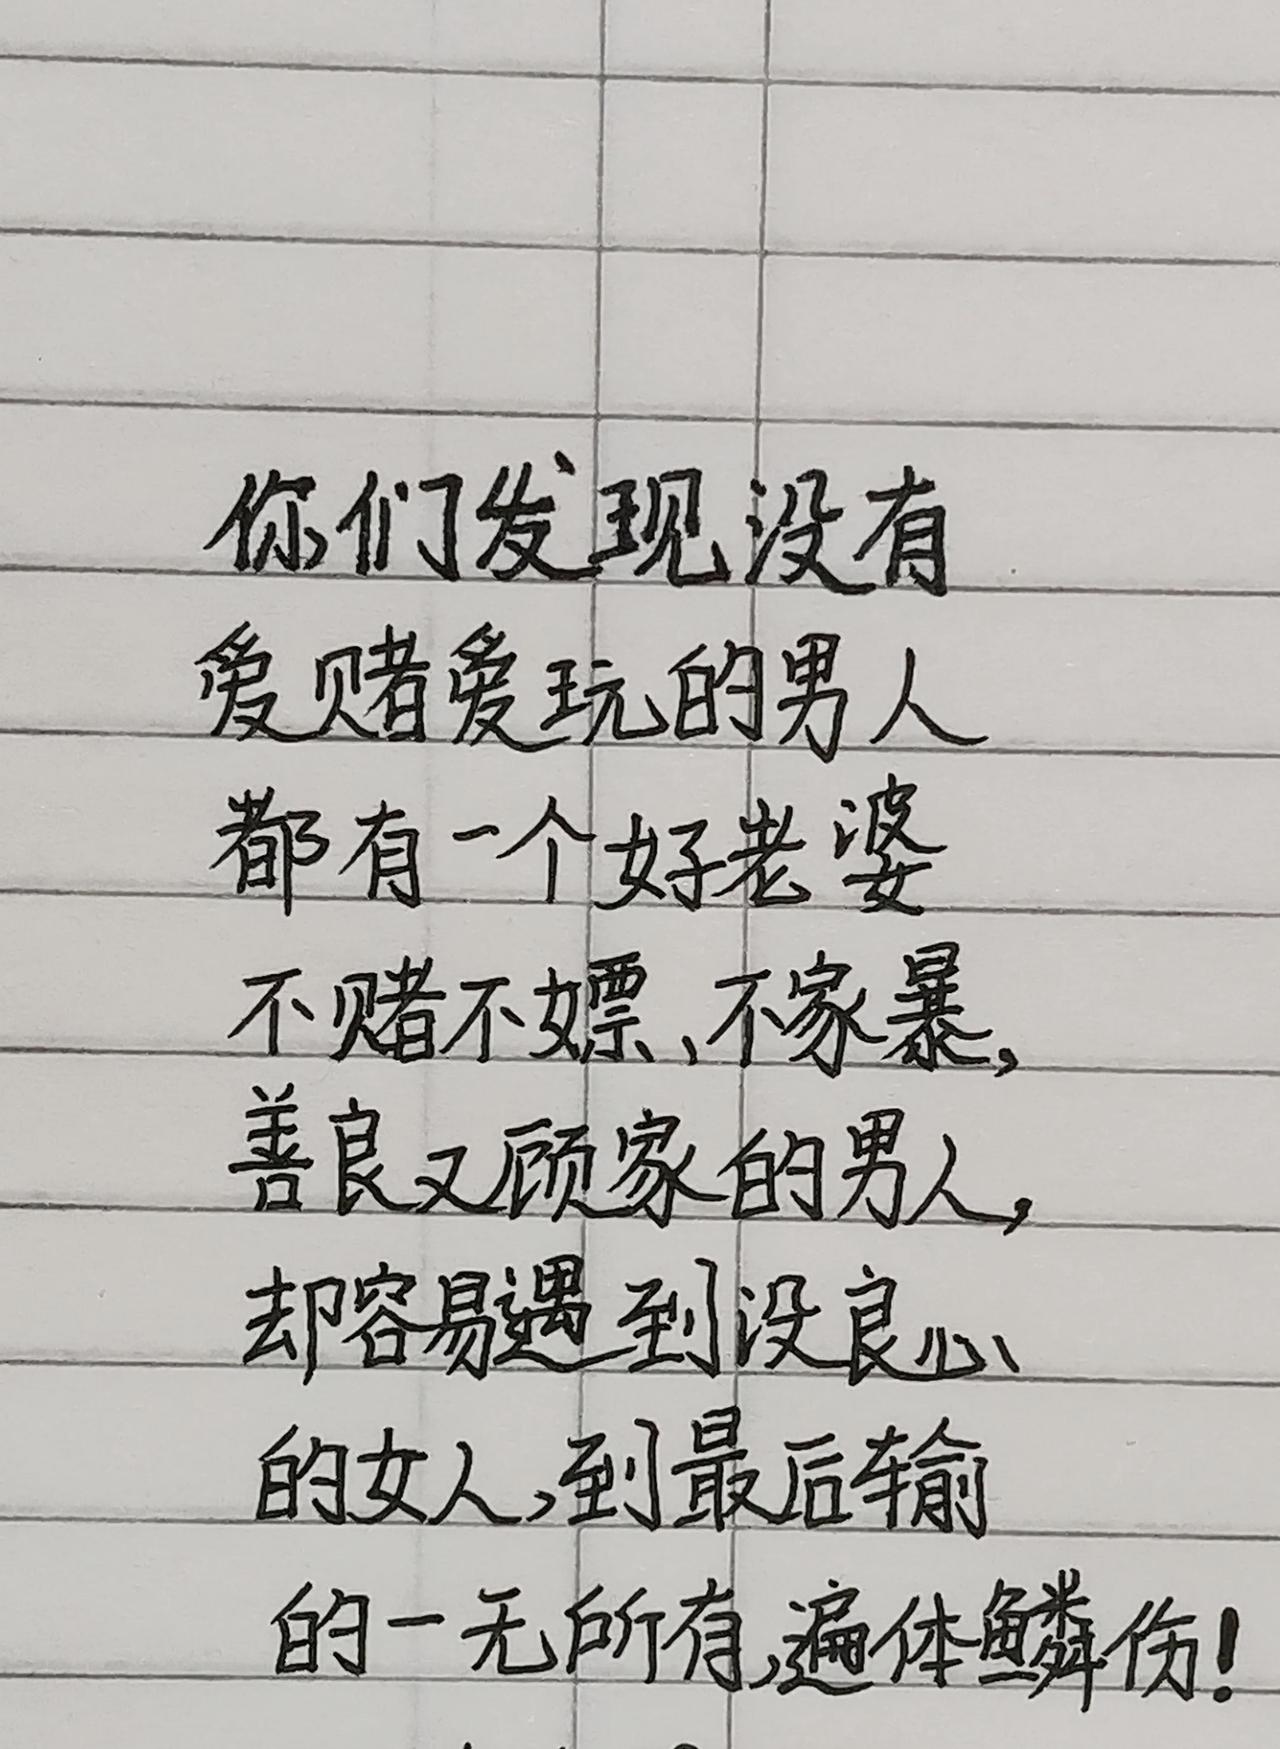 你们发现没有
爱赌爱玩的男人
都有一个好老婆
不赌不嫖、不家暴,
善良又顾家的男人,
却容易遇到没良心
的女人,到最后输
的一无所有,遍体鳞伤!